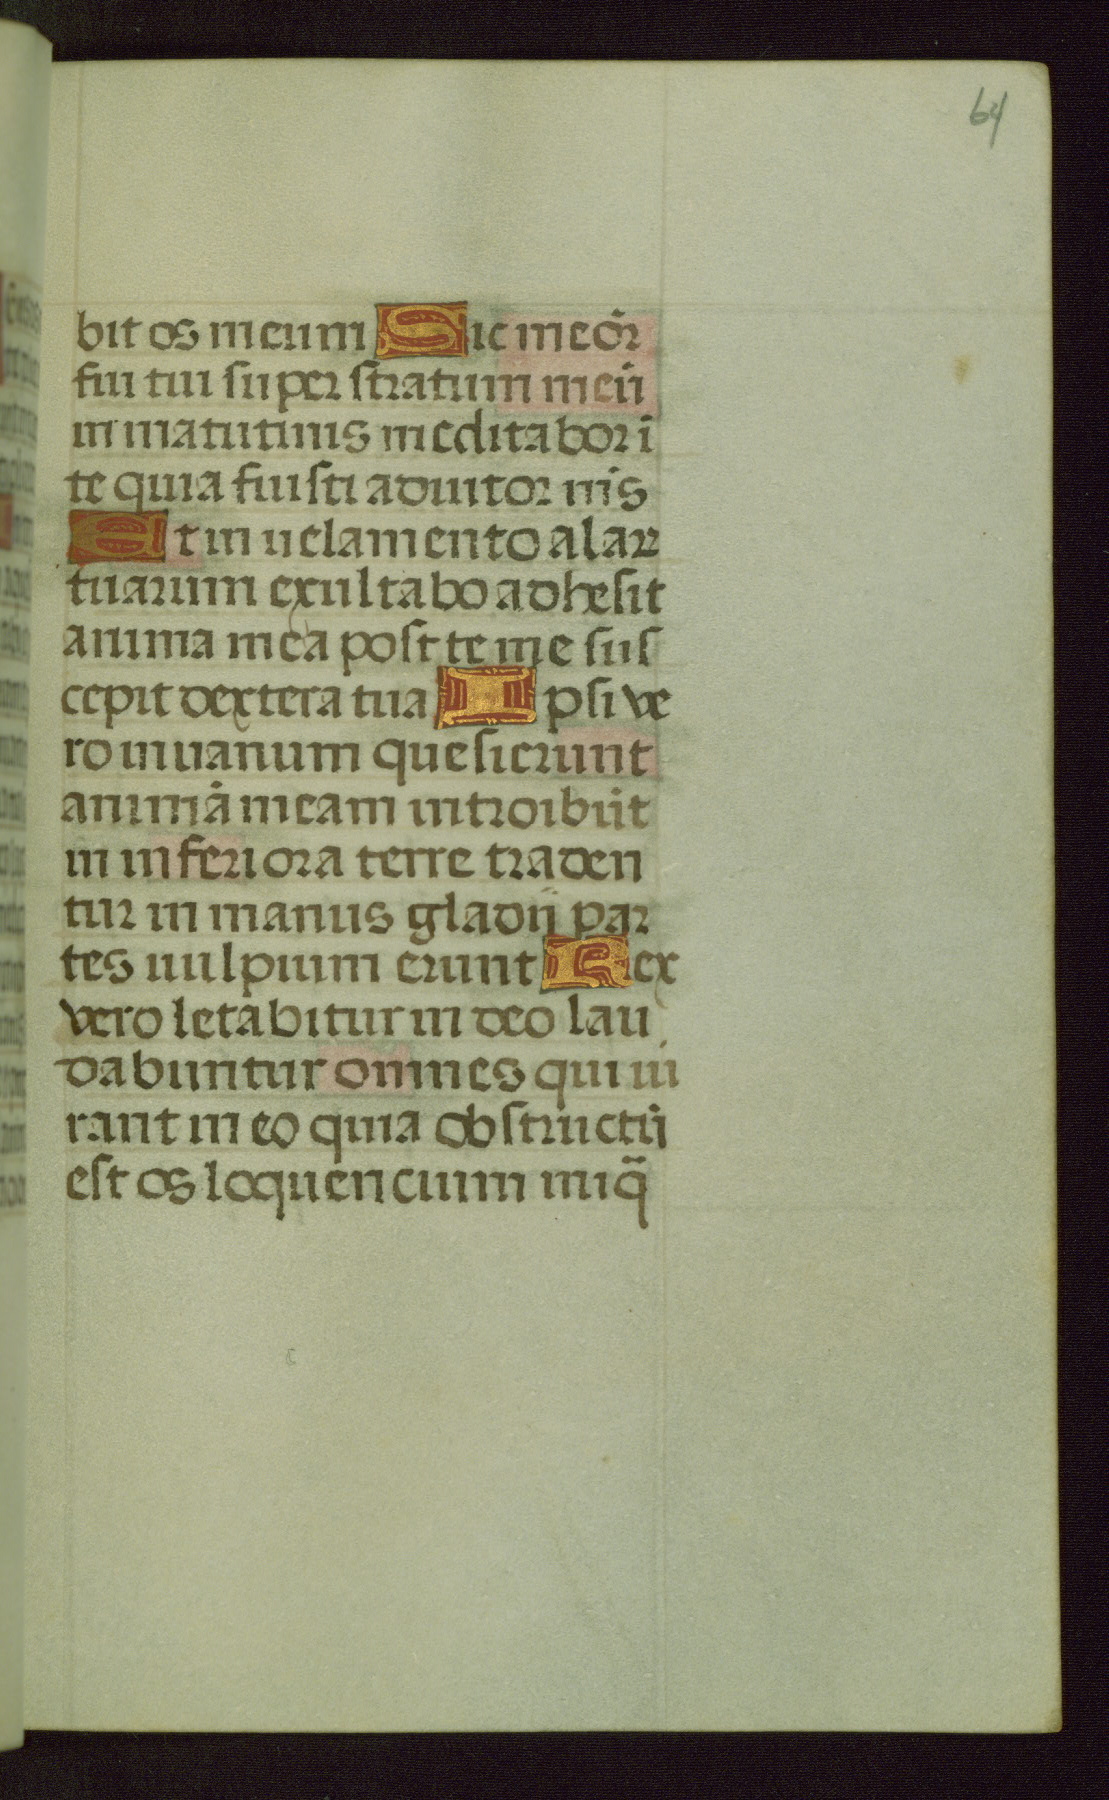 64
bit os meum Sic meōr
fui tui super stratum meū
in matutinis meditabor ī
te quia fuisti adiutor mīs
Et in uelamento alaꝝ
tuarum exultabo adhesit
anima mea post te me sus
cepit dextera tua Ipsi ve
ro in uanum quesierunt
animā meam introibūt
in inferiora terre traden
tur in manus gladij par
tes uulpium erunt Rex
vero letabitur in deo lau
dabuntur omnes qui iu
rant in eo quia obstructū
est os loquencium iniq̄